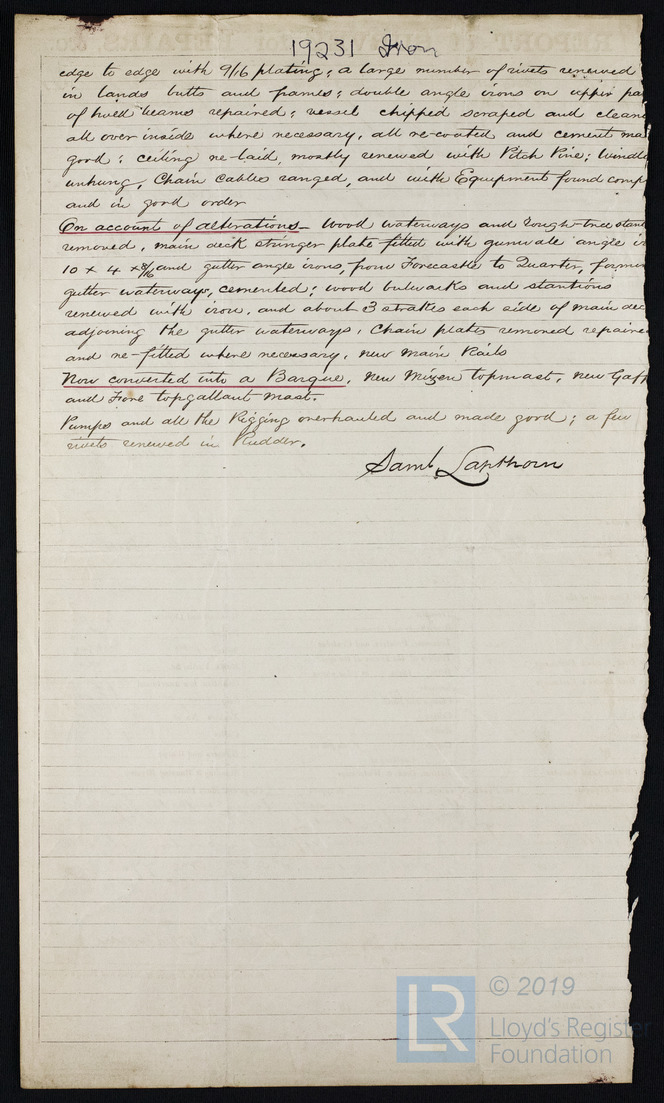 19231 Iron
edge to edge with 9/16 plating; a large number of rivets renewed
in lands butts and frames; double angle irons on upper pa
of hold beams repaired; vessel chipped scraped and clean
all over inside where necessary, all re-coated and cement ma
good; ceiling re-laid, mostly renewed with Pitch Pine; Windl
unhung, Chain Cables ranged, and with Equipment found comp
and in good order
On account of alterations_ Wood waterways and rough-tree stan
removed, main deck stringer plate fitted with gunwale angle ir
10 x 4 x 8/16 and gutter angle irons, from Forecastle to Quarter, formin
gutter waterways, cemented; wood bulwarks and stantions
renewed with iron, and about 3 strakes each side of main dec
adjoining the gutter waterways, Chain plates removed repaire
and re-fitted where necessary, new Main Rails
Now converted into a Barque, New Mizen topmast, new Gaff
and Fore topgallant mast.
Pumps and all the Rigging overhauled and made good; a few
rivets renewed in Rudder.
Saml. Lapthorn
LR
© 2019
Lloyd's Register
Foundation